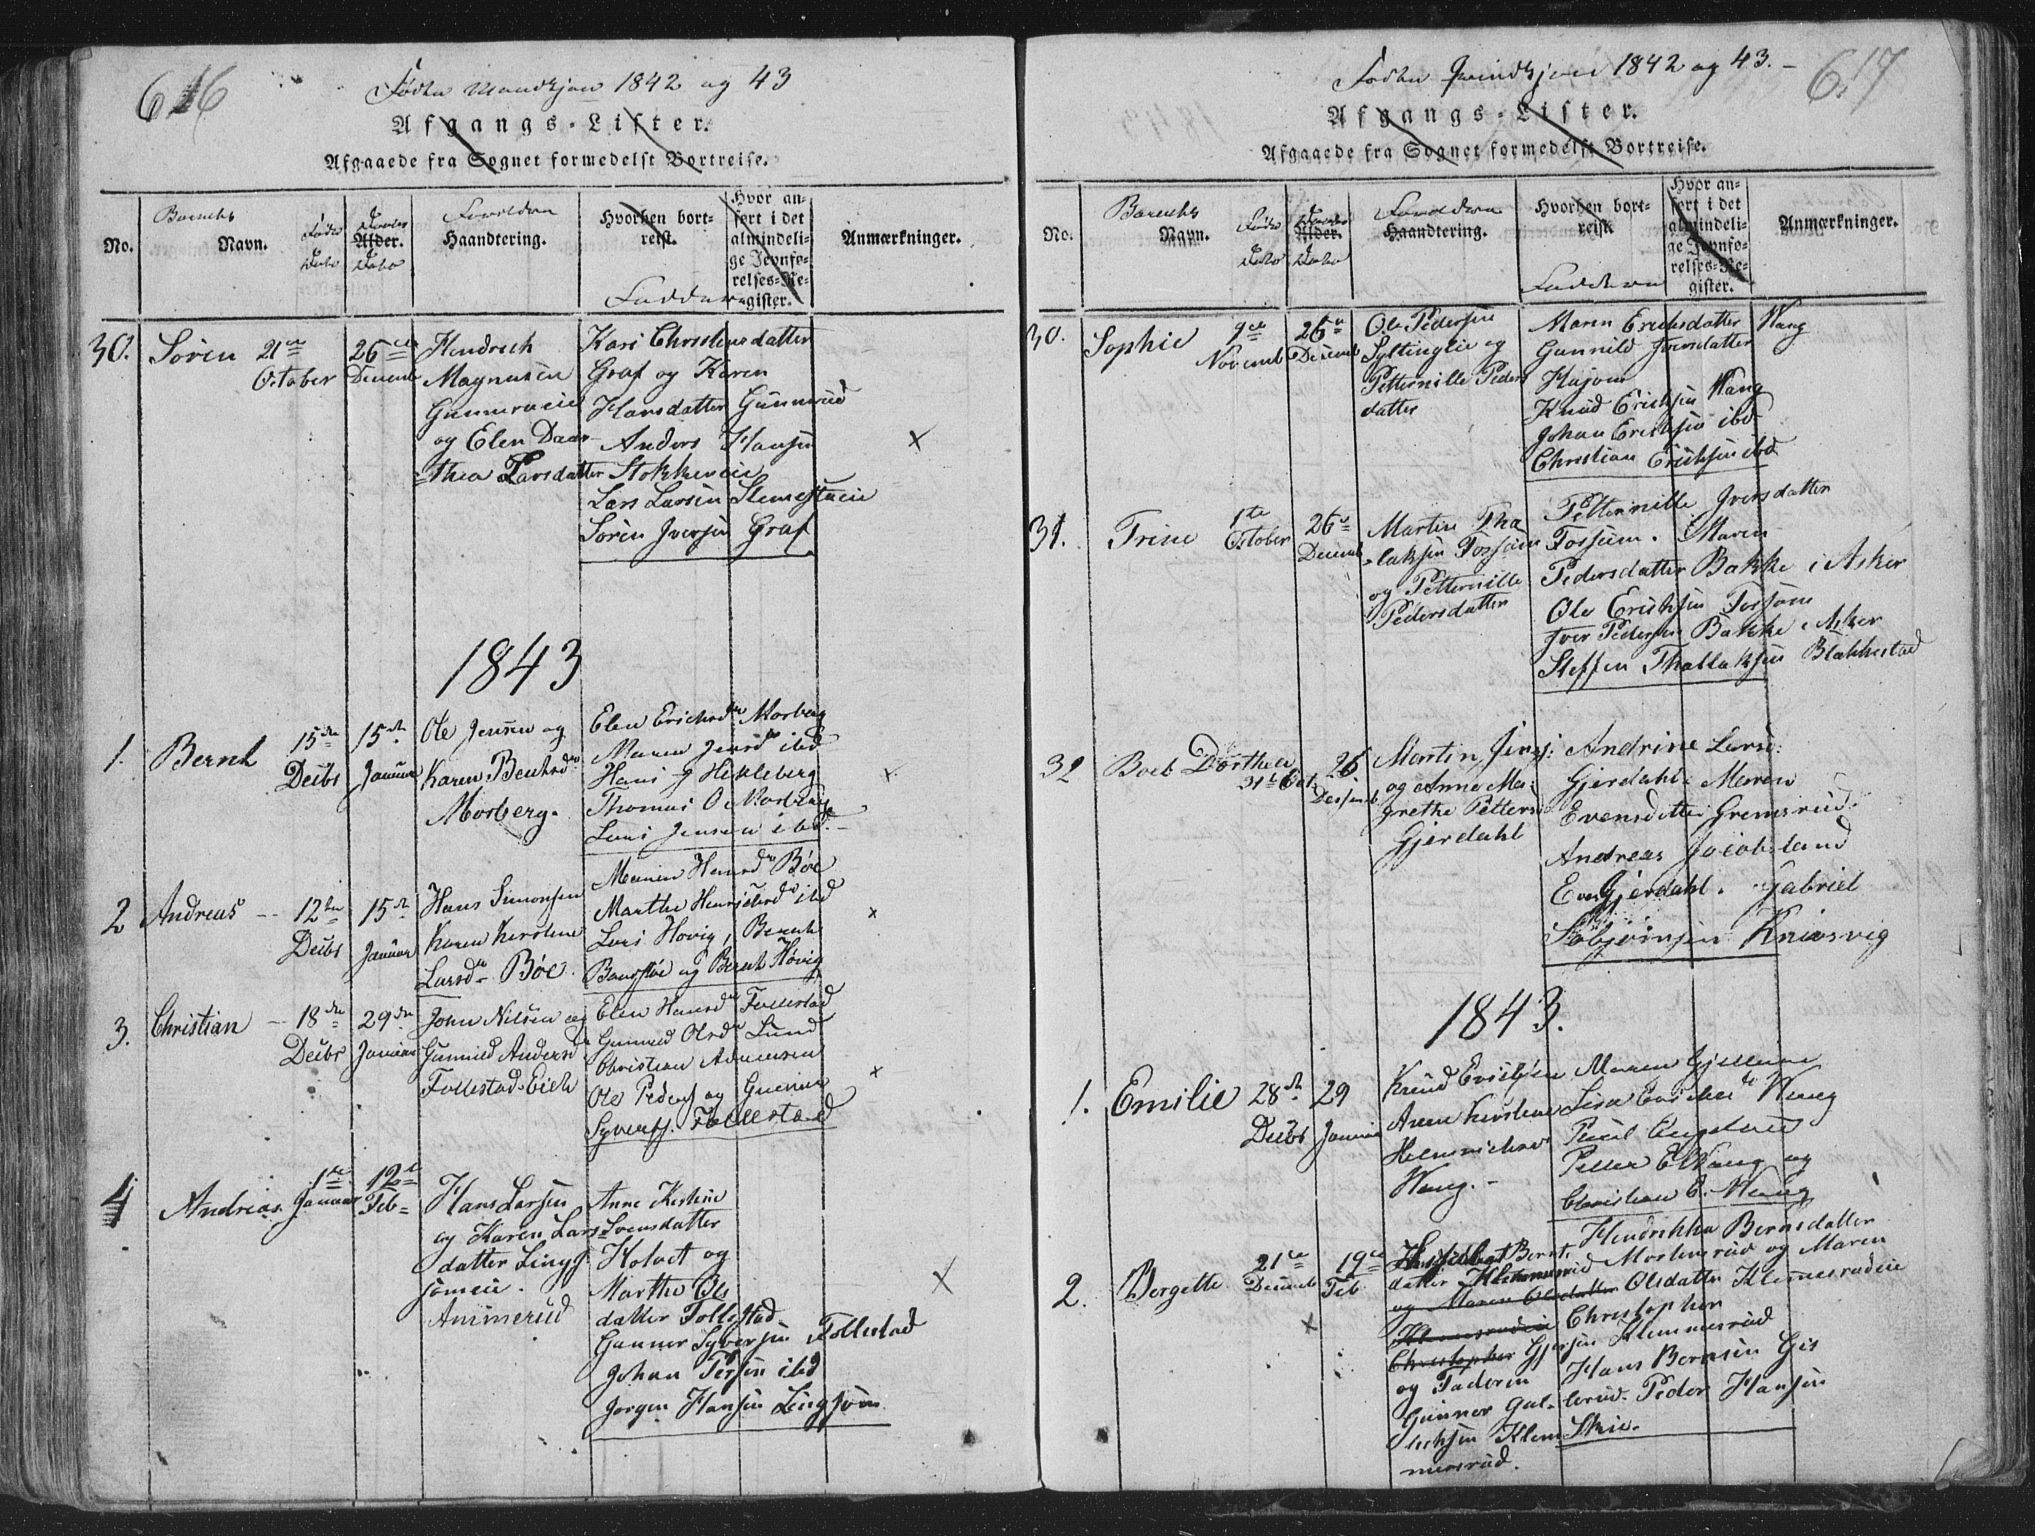 616
Fødte Mandkjøn 1842 og 43
Afgangs-Lister.
Afgaaede fra Sognet formedelst Bortreise.
No.
Barnets
Navn.
Føds
Dato
Daabs
Alder.
Dato
Foreldren
Haandtering.
Hvorhen bort-
reist.
Faddere
Hvor an-
ført i det
almindeli-
ge Jevnfø-
relses-Re-
gister.
Anmærkninger.
30. Sören 21de October 26de Decemb
Hendrech
Magnusen
og Elen Daar-
thea Larsdatter
Kari Christensdatter
Graf og Karen
Hansdatter Gunnerud
Anders Hansen
Stokkereie
Lars Larsen
Sören Iversen Graf
1843
1. Bernt 15de Decbr 15de Januar
Ole Jensen og
Karen Bentsdr
Morberg.
Elen Erichsdr Morberg
Maren Jensdr ibd
Hans J Hekleberg
Thomas O Morberg
Lars Jensen ibd.
2 Andreas 12te Decbr 15de Januar
Hans Simonsen
Karen Kirstine
Larsdr Böe.
Maren Hansdr Böe
Marthe Henrichsd ibd
Lars Hovig, Bernt
og Bernt Hövig
3. Christian 18de Decbr 29de Januar
John Nilsen og
Gunnild Andersd
Follestad-Eie
Elen Hansdr Follestad
Gunnild Olsdr Lund
Christian Amundsen
Ole Peders og Gunner
Syversj. Follestad
4 Andreas 1te Januar 12te Feb
Hans Larsen
og Karen Lars
datter Ling
someie.
Ammerud
Anne Kistine
Svensdatter
Holvet og
Marthe Ols
datter Follestad
Gunner Syversen Follestad
Johan ibd
Jorgen Hansen Lingsom
617
Fødte Qvindkjøn 1842 og 43.
Afgangs-Lister.
Afgaaede fra Sognet formedelst Bortreise.
No.
Barnets
Navn.
Føds
Dato
Daabs
Alder.
Dato
Foreldrene
Haandtering.
Hvorhen bort-
reist.
Faddere
Hvor an-
ført i det
almindeli-
ge Jevnfø-
relses-Re-
gister.
Anmærkninger.
30. Sophie 9de Novemb 26de Decemb
Ole Pedersen
Syltinglie og
Petternille Peders
datter
Maren Erichsdatter Wang
Gunnild Iversdatter
Hajom
Knud Erichsen Wang
Johan Erichsen ibd
Christian Erichsen ibd
31. Trine 1te October 26de Decemb
Martin Tha
laksen Fossum
og Petternille
Pedersdatter
Petternille Iversdatter
Fossum. Maren
Pedersdatter Bakke i Asker
Ole Erichsen Fossum
Iver Pedersen Bakke i Asker
Steffen Thallaksen Blakkestad
32 Boeb Dorthea 31te Oct. 26 Desemb
Martin Jensj:
og Anne Ma-
grethe Petters
Gjerdahl
Andrine Larsd:
Gjerdahl. Maren
Evensdatter Gremsrud.
Andreas Jacobsland
Even Gjerdahl. Gabriel
Knivsvig
1843.
1. Emilie 28de Decbr 29 Januar
Knud Erichsen
Anne Kirstine
Wang.
Maren Gjellum
Lisa Erichsdr Wang
Poul Engelsrud
Petter E Wang og
Christian E. Wang
2. Bergette 21de Decemb 19de Feb
Bernts
datter Klemmesrud
og Maren Olsdatter
Klemesrudeie
Christopher Gjersen
og Faderen
Gunner Gul-
leksen Klem
mersrud.
Hendrikka Berntsdatter
Mortensrud og Maren
Olsdatter Klemesrudeie
Christopher
Klemmesrud
Hans Bernsen Gis
lerud. Peder Hansen
Skie.